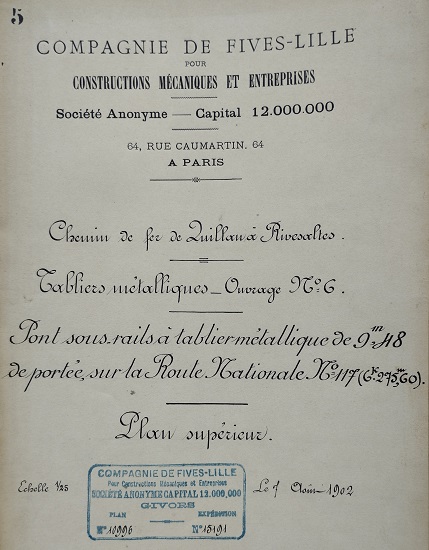 5
COMPAGNIE DE FIVES-LILLE
POUR
CONSTRUCTIONS MÉCANIQUES ET ENTREPRISES
Société Anonyme — Capital 12.000.000
64, RUE CAUMARTIN, 64
A PARIS
Chemin de fer de Quillan à Rivesaltes.
Tabliers métalliques _ Ouvrage No. 6.
Pont sous-rails à tablier métallique de 9m,48
de portée, sur la Route Nationale No. 117 (6k.275m,60).
Plan supérieur.
Echelle 1/25
Le 7 Août 1902
COMPAGNIE DE FIVES-LILLE
Pour Constructions Mécaniques et Entreprises
SOCIÉTÉ ANONYME CAPITAL 12.000,000
GIVORS
PLAN EXPÉDITION
No 10996 No 15191